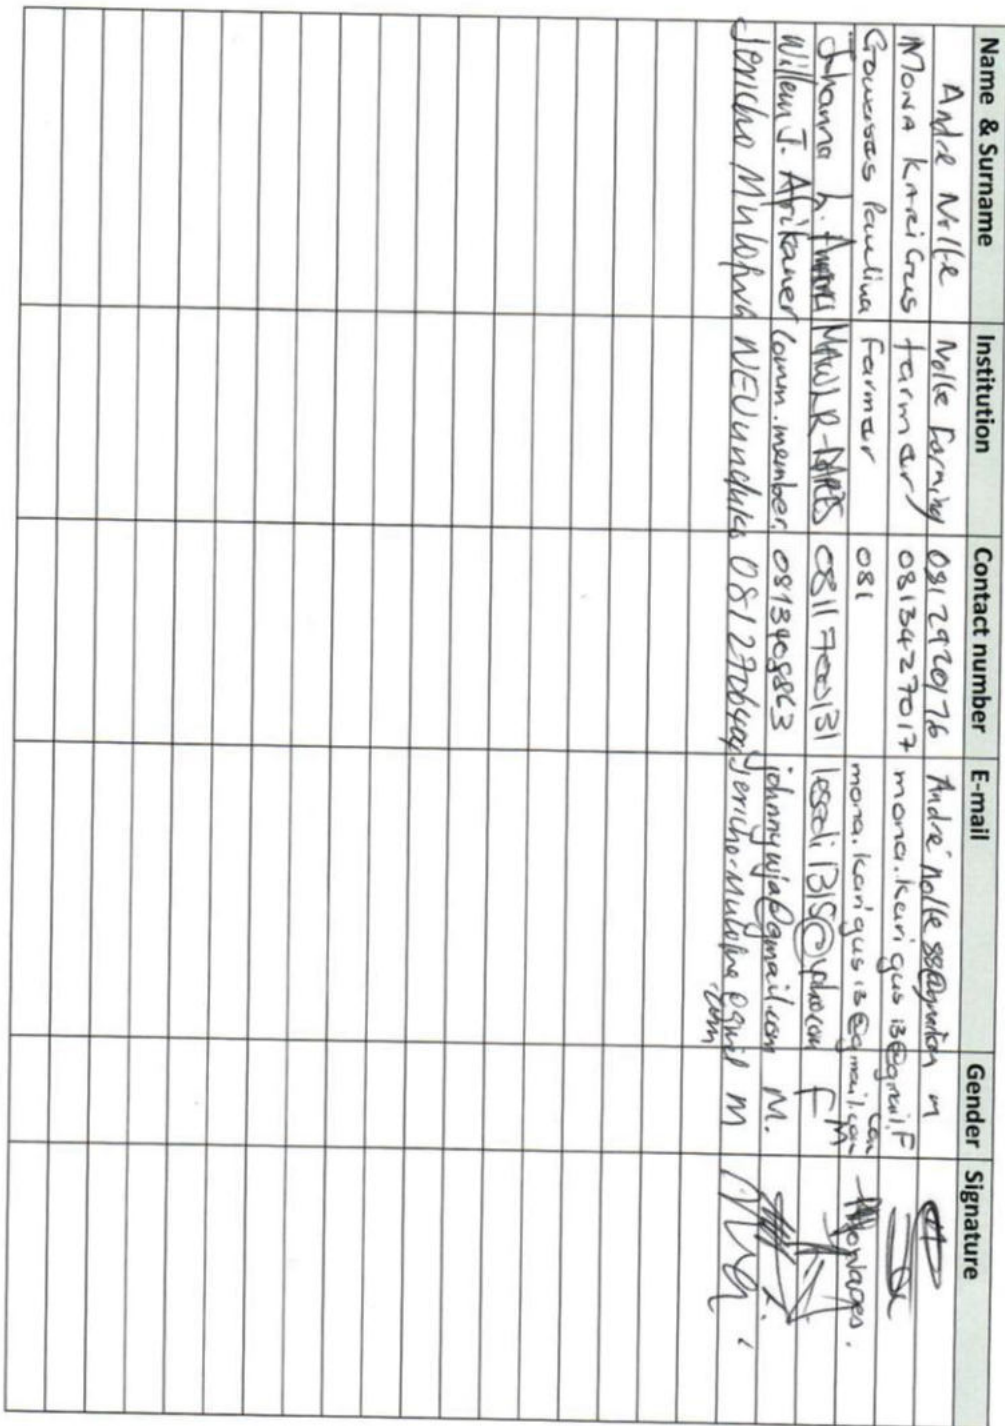 Name & Surname Institution Contact number E-mail Gender Signature
Andre Nolle Nolle Farming 0812920176 André nolle 88@ M
Mona Karigus farmer 0813427017 mona.karigus13@gmail.com F
Gowases Paulina Farmar 081 mona.karigus13@gmail.com M
Johanna L. MAWLR-DAPEES 0811700131 lesedi1315@yahoo.com F
Willem J. Afrikaner Comm. member. 0813408863 johnnywja@gmail.com M.
Jericho Mulofwa 0812706404 Jericho.Mulofwa@gmail.com M